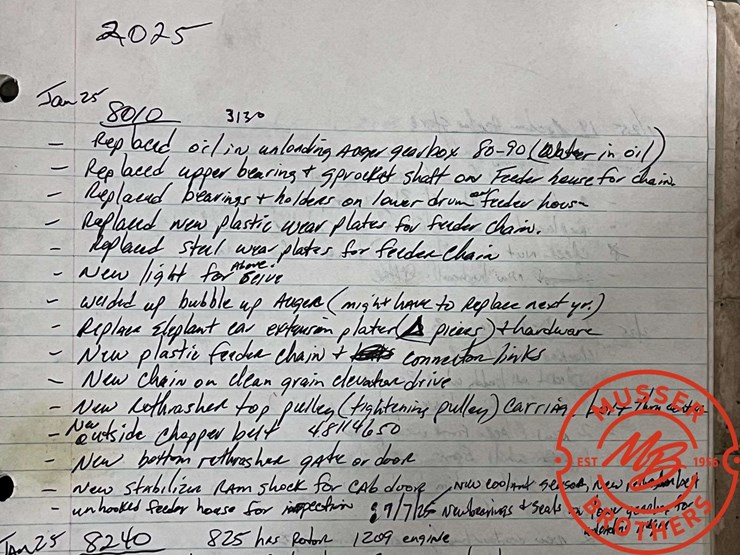 2025
Jan 25
8010 3130
- Replaced oil in unloading Auger gearbox 80-90 (Water in oil)
- Replaced upper bearing + sprocket shaft on Feeder house for chain.
- Replaced bearings + holders on lower drum on feeder house
- Replaced new plastic wear plates for feeder chain.
- Replaced steel wear plates for feeder chain
- New light for Above seive
- welded up bubble up Auger (might have to Replace next yr.)
- Replace Elephant ear extension plates ( pieces) + hardware
- New plastic feeder chain + connector links
- New chain on clean grain elevator drive
- New rethrasher top pulley (tightening pulley) carring
- New outside chopper belt 48114650
- New bottom rethrasher gate or door
- New stabilizer RAM shock for CAb door New coolant sensor, New
- unhooked feeder house for inspection 9/7/25 New bearings + Seals
Jan 25 8240 825 hrs 1209 engine
MUSSER BROTHERS
MB
EST